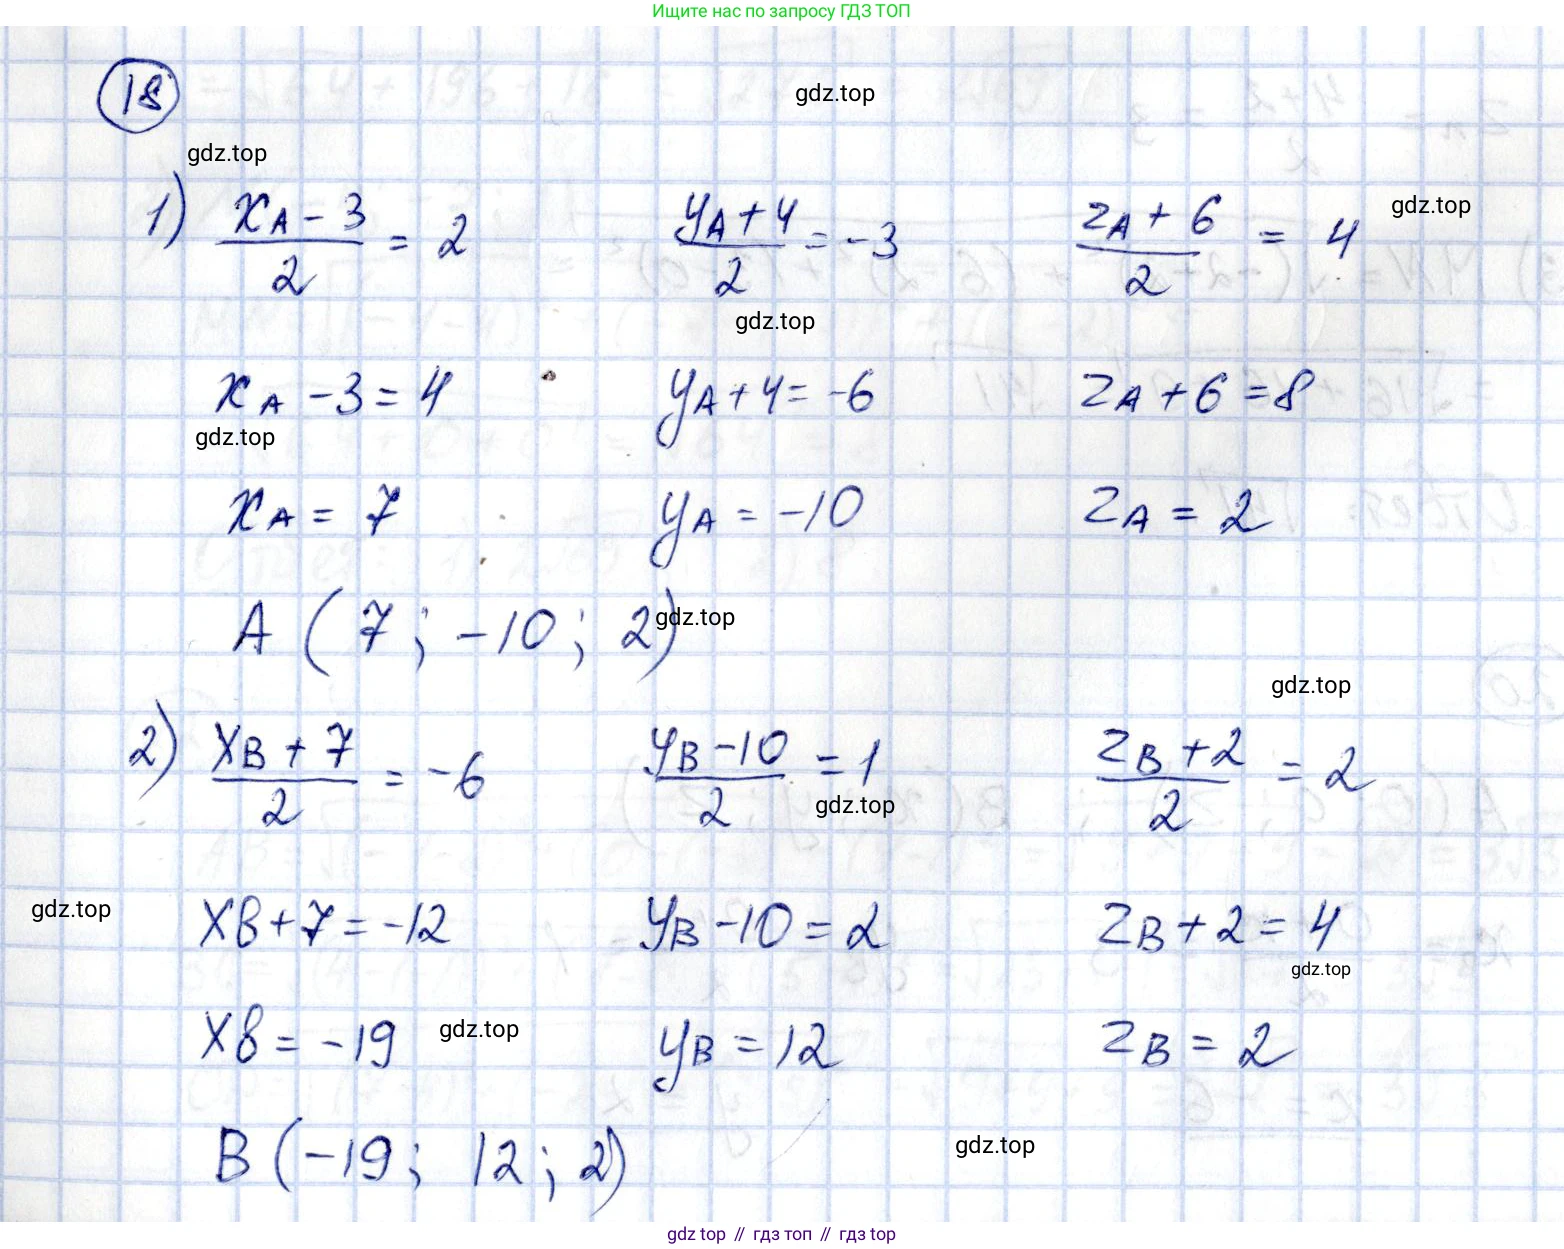 Ищите нас по запросу ГДЗ ТОП
18
gdz.top
gdz.top
1) (xA - 3)/2 = 2   (yA + 4)/2 = -3   (zA + 6)/2 = 4
gdz.top
gdz.top
xA - 3 = 4   yA + 4 = -6   zA + 6 = 8
gdz.top
xA = 7   yA = -10   zA = 2
A (7; -10; 2)
gdz.top
gdz.top
2) (xB + 7)/2 = -6   (yB - 10)/2 = 1   (zB + 2)/2 = 2
gdz.top
gdz.top
xB + 7 = -12   yB - 10 = 2   zB + 2 = 4
gdz.top
xB = -19   yB = 12   zB = 2
gdz.top
B (-19; 12; 2)
gdz.top
gdz top // гдз топ // gdz.top